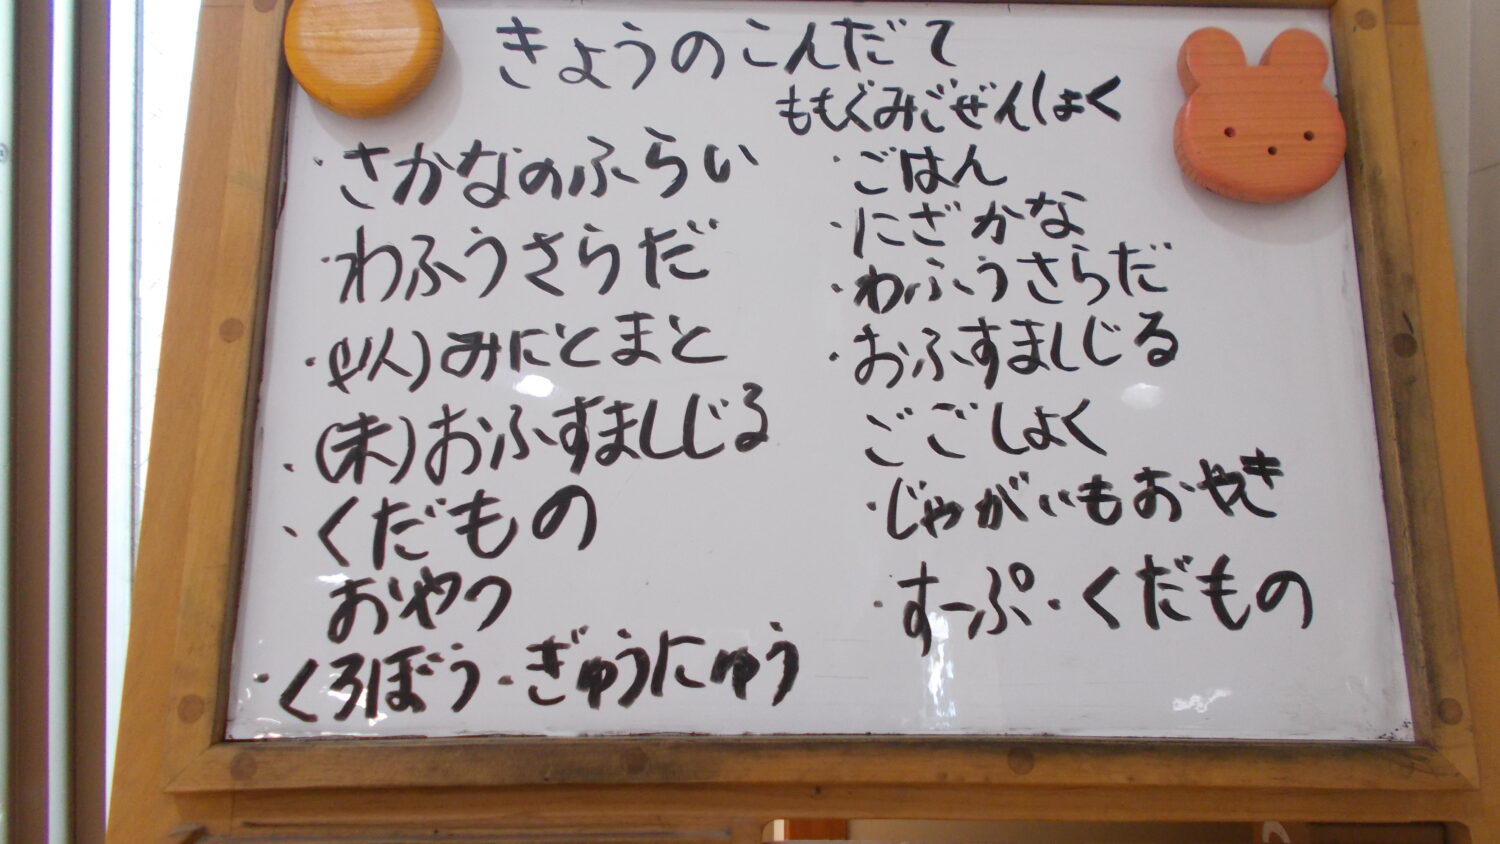 きょうのこんだて
・さかなのふらい
・わふうさらだ
・(以)みにとまと
・(未)おふすましじる
・くだもの
おやつ
・くろぼう・ぎゅうにゅう
ももぐみごぜんしょく
・ごはん
・にざかな
・わふうさらだ
・おふすましじる
ごごしょく
・じゃがいもおやき
・すーぷ・くだもの